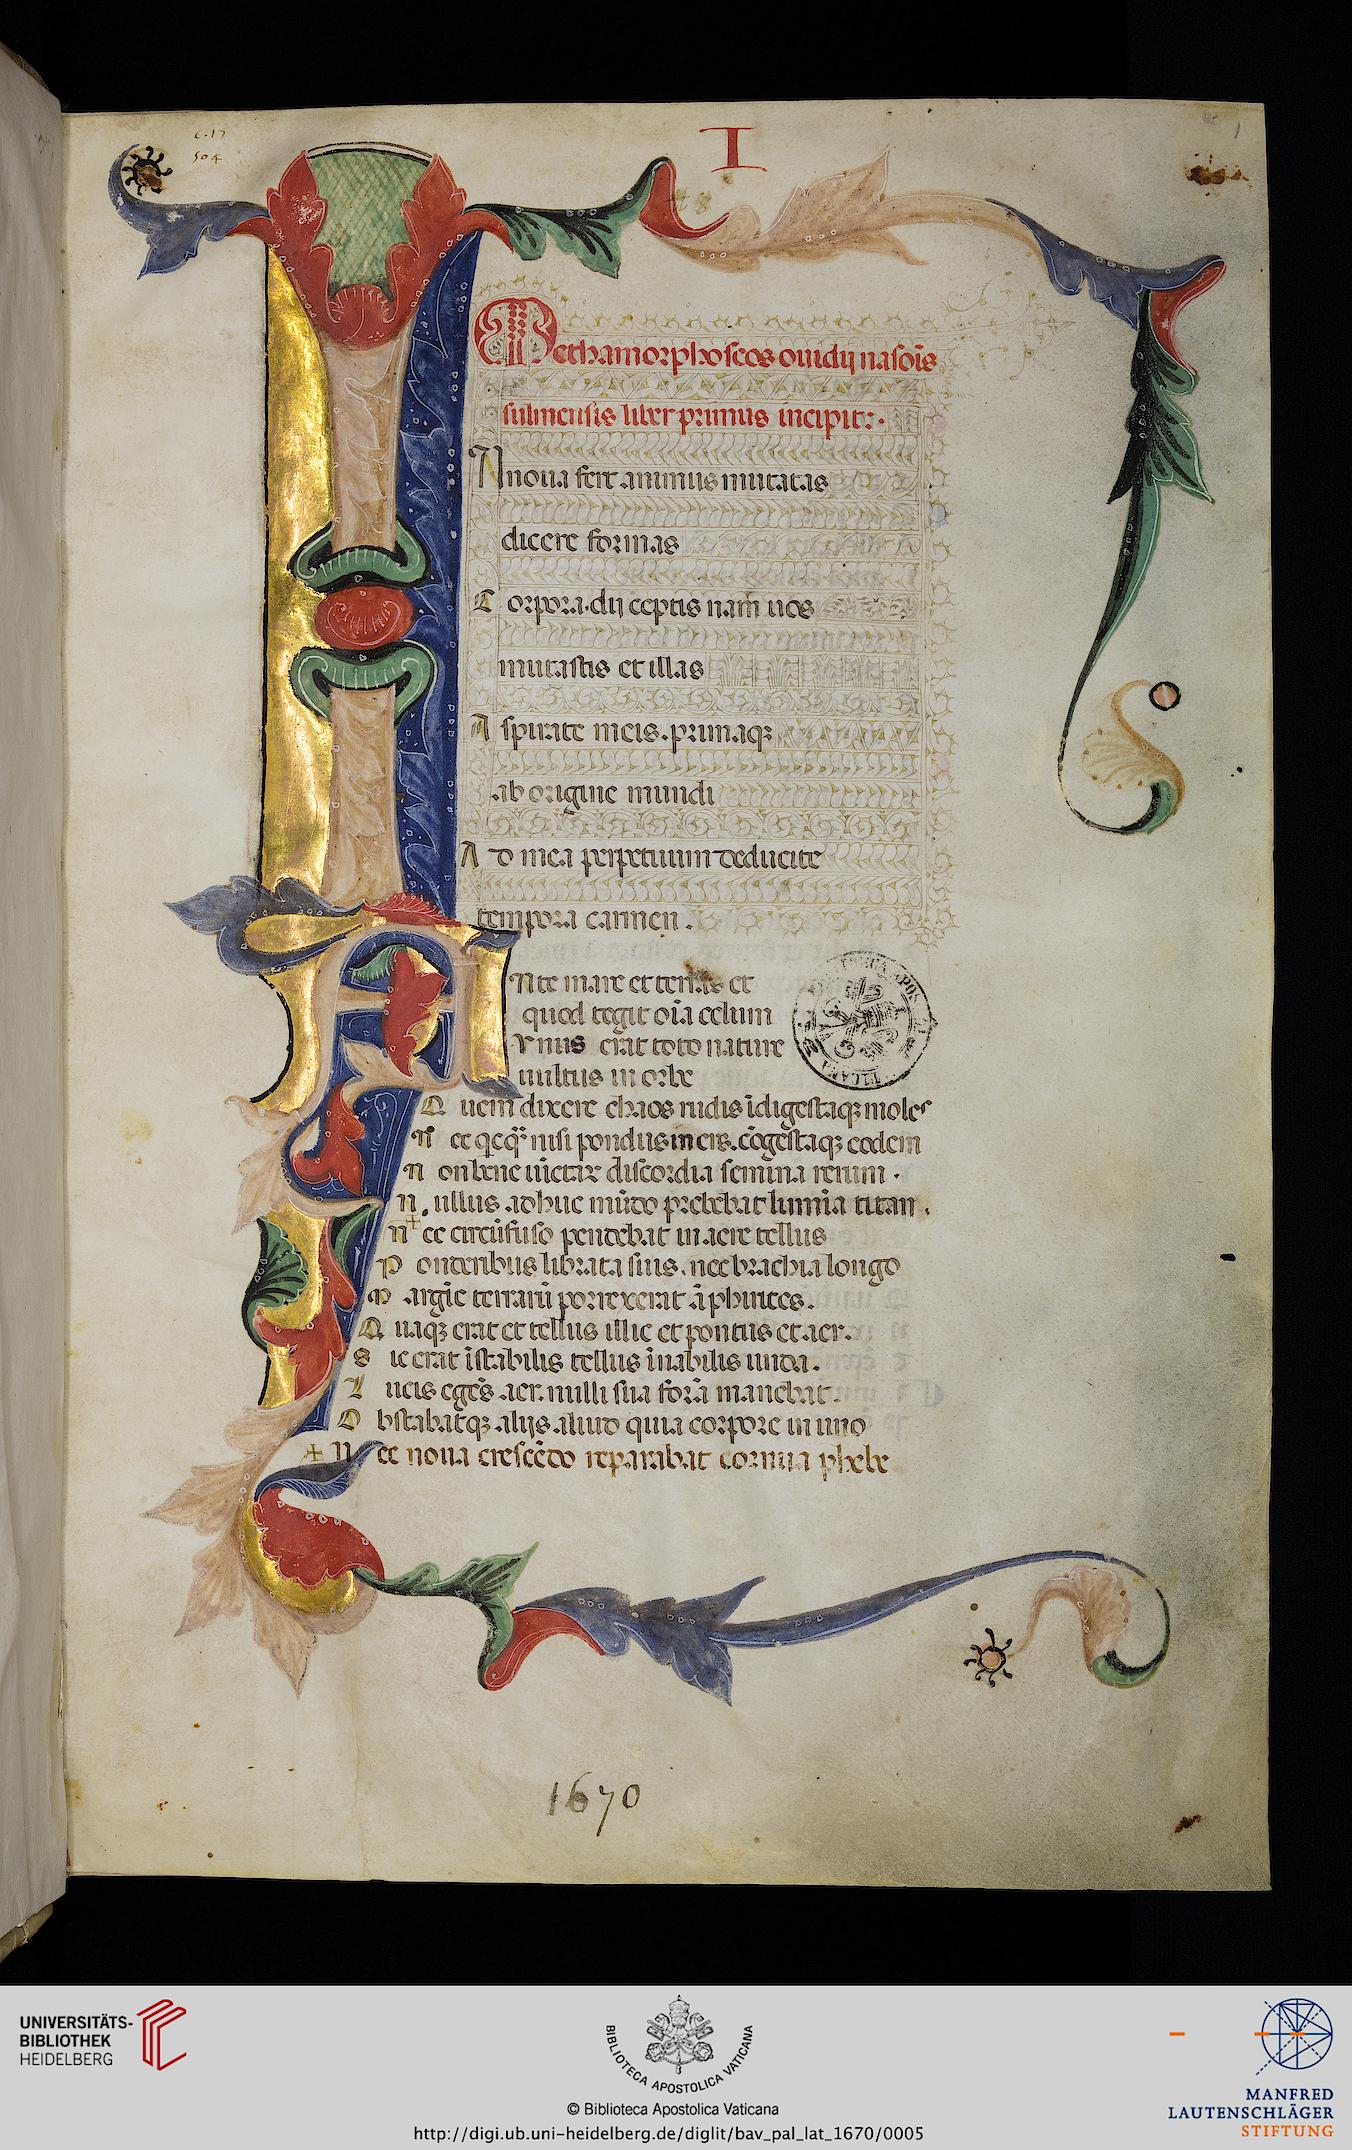 c. 17
504
I
1
Methamorphoseos ouidij nasoīs
sulmensis liber primus incipit:·
IN noua fert animus mutatas
dicere formas
C orpora. dij ceptis nam uos
mutastis et illas
A spirate meis. primaqꝫ
ab origine mundi
A d mea perpetuum deducite
tempora carmen.
ANte mare et terras et
quod tegit oīa celum
Vnus erat toto nature
uultus in orbe
Q uem dixere chaos rudis īdigestaqꝫ moles
N ec qcqᷓ nisi pondus iners. cōgestaqꝫ eodem
N on bene iūctaꝝ discordia semina rerum.
N ullus adhuc mūdo prebebat lumīa titan.
+ N ec noua crescēdo reparabat cornua phebe
N+ ec circūfuso pendebat in aere tellus
P onderibus librata suis. nec brachia longo
M argīe terrarū porrexerat āphitrites.
Q uaqꝫ erat et tellus illic et pontus et aer.
S ic erat īstabilis tellus īnabilis unda.
L ucis egēs aer. nulli sua forā manebat.
O bstabatqꝫ alijs aliud quia corpore in uno
1670
UNIVERSITÄTS-
BIBLIOTHEK
HEIDELBERG
BIBLIOTECA APOSTOLICA VATICANA
© Biblioteca Apostolica Vaticana
http://digi.ub.uni-heidelberg.de/diglit/bav_pal_lat_1670/0005
MANFRED
LAUTENSCHLÄGER
STIFTUNG